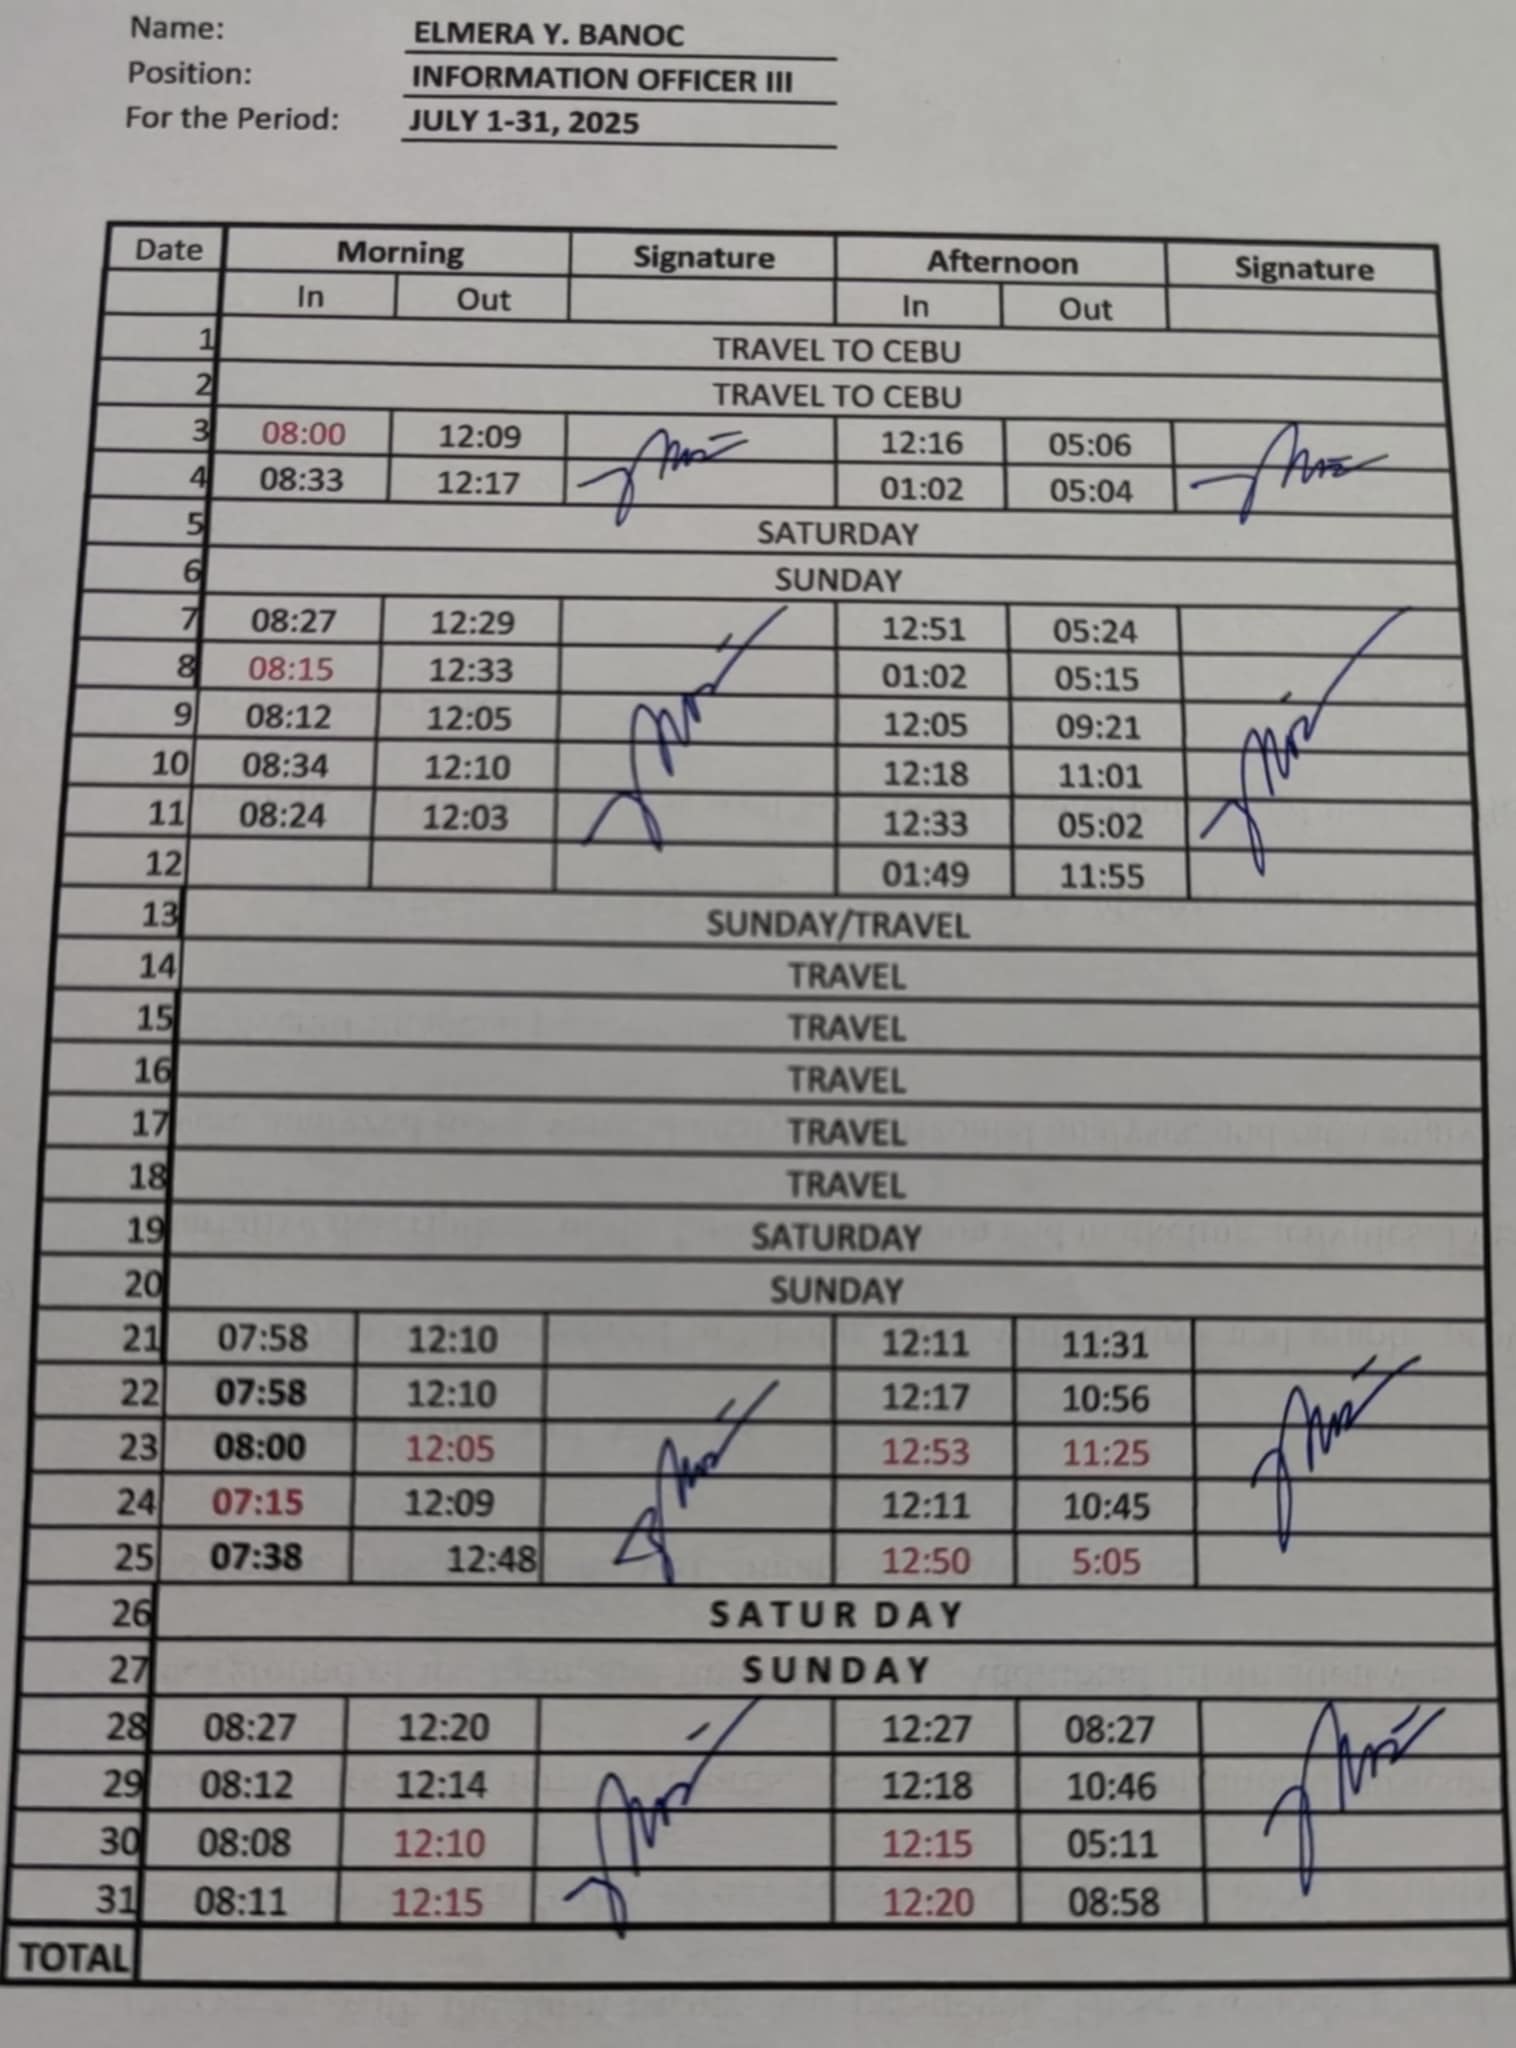 Name: ELMERA Y. BANOC
Position: INFORMATION OFFICER III
For the Period: JULY 1-31, 2025
Date Morning Signature Afternoon Signature
In Out In Out
1 TRAVEL TO CEBU
2 TRAVEL TO CEBU
3 08:00 12:09 12:16 05:06
4 08:33 12:17 01:02 05:04
5 SATURDAY
6 SUNDAY
7 08:27 12:29 12:51 05:24
8 08:15 12:33 01:02 05:15
9 08:12 12:05 12:05 09:21
10 08:34 12:10 12:18 11:01
11 08:24 12:03 12:33 05:02
12 01:49 11:55
13 SUNDAY/TRAVEL
14 TRAVEL
15 TRAVEL
16 TRAVEL
17 TRAVEL
18 TRAVEL
19 SATURDAY
20 SUNDAY
21 07:58 12:10 12:11 11:31
22 07:58 12:10 12:17 10:56
23 08:00 12:05 12:53 11:25
24 07:15 12:09 12:11 10:45
25 07:38 12:48 12:50 5:05
26 SATUR DAY
27 SUNDAY
28 08:27 12:20 12:27 08:27
29 08:12 12:14 12:18 10:46
30 08:08 12:10 12:15 05:11
31 08:11 12:15 12:20 08:58
TOTAL